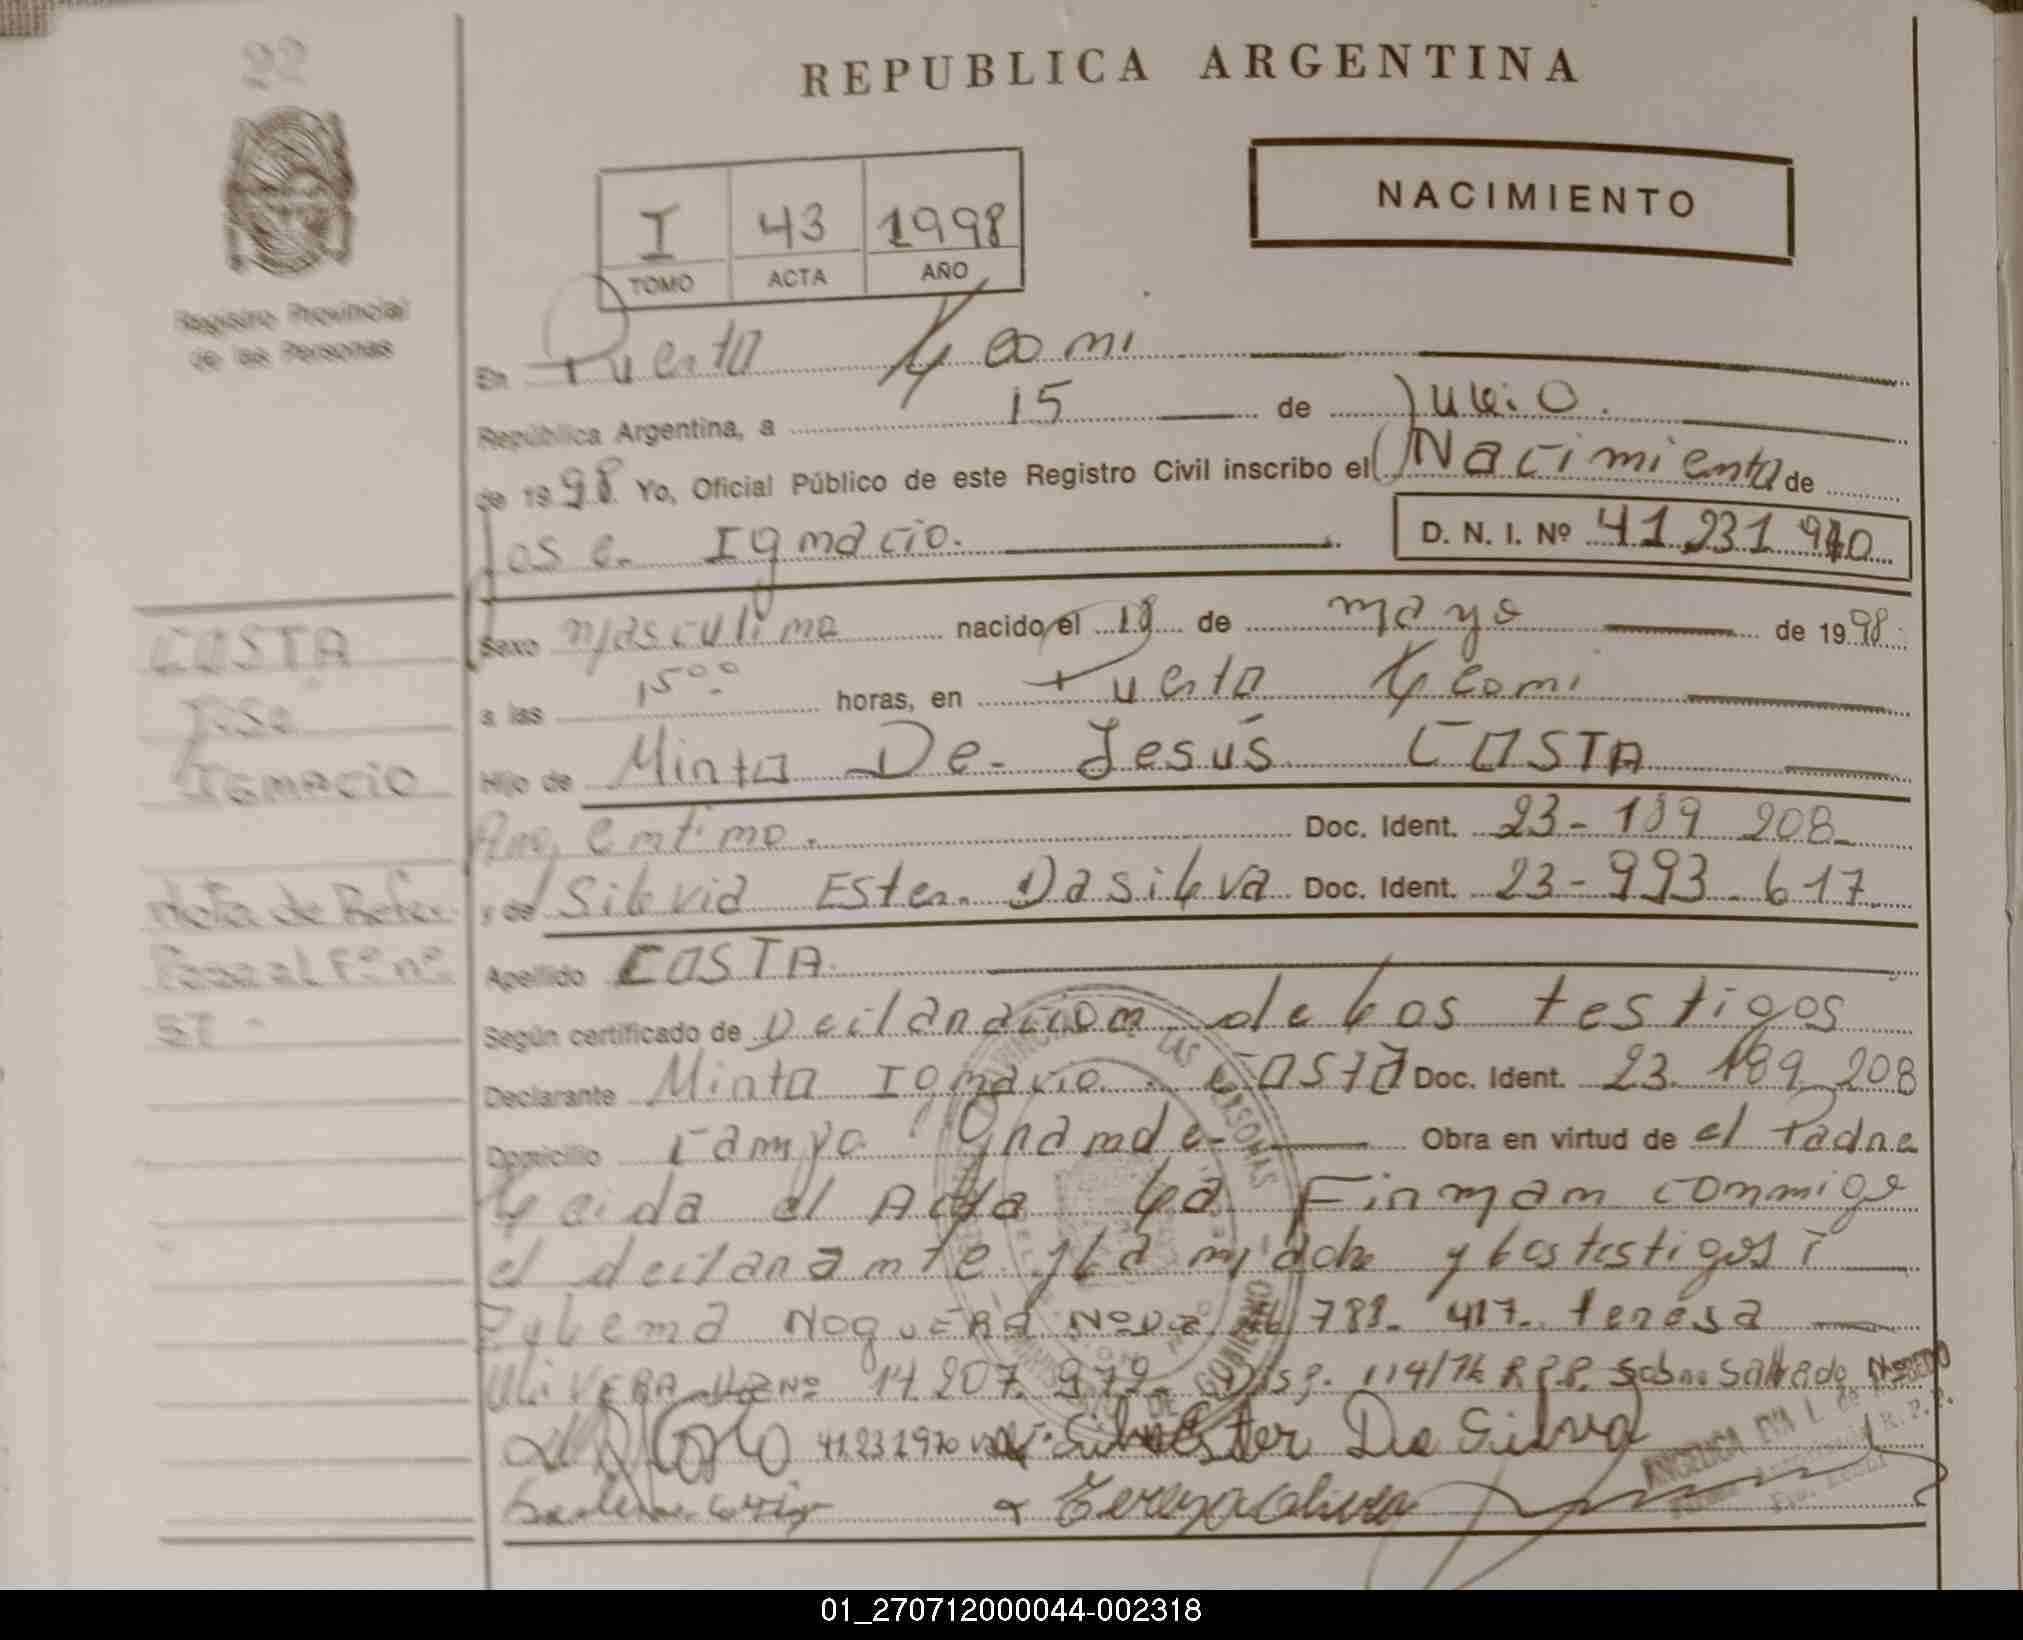 22
REPUBLICA ARGENTINA
NACIMIENTO
I 43 1998
TOMO ACTA AÑO
Registro Provincial
de las Personas
En Puerto Leoni
República Argentina, a 15 de Julio.
de 1998. Yo, Oficial Público de este Registro Civil inscribo el Nacimiento de
Jose Ignacio.
D. N. I. Nº 41.231.970
Sexo masculino nacido el 18 de mayo de 1998.
a las 15°° horas, en Puerto Leoni
Hijo de Minto De Jesús COSTA
Argentino. Doc. Ident. 23-189 208
y de Silvia Ester Dasilva Doc. Ident. 23-993-617
Apellido COSTA.
Según certificado de Declaracion de los testigos
Declarante Minto Ignacio COSTA Doc. Ident. 23.189 208
Domicilio Campo Grande Obra en virtud de el Padre
Leida el Acta la Firman conmigo
el declarante y la madre y los testigos:
NOGUERA 788. 417. teresa
OLIVERA 14.207.972 Disp. 114/76 R.P.P. Sobre Salbado
41.231.970 Silvia Ester Da Silva
Tereza Olivera
COSTA
Jose
Ignacio
Nota de Refer.
Pasa al Fº nº
57
01_270712000044-002318